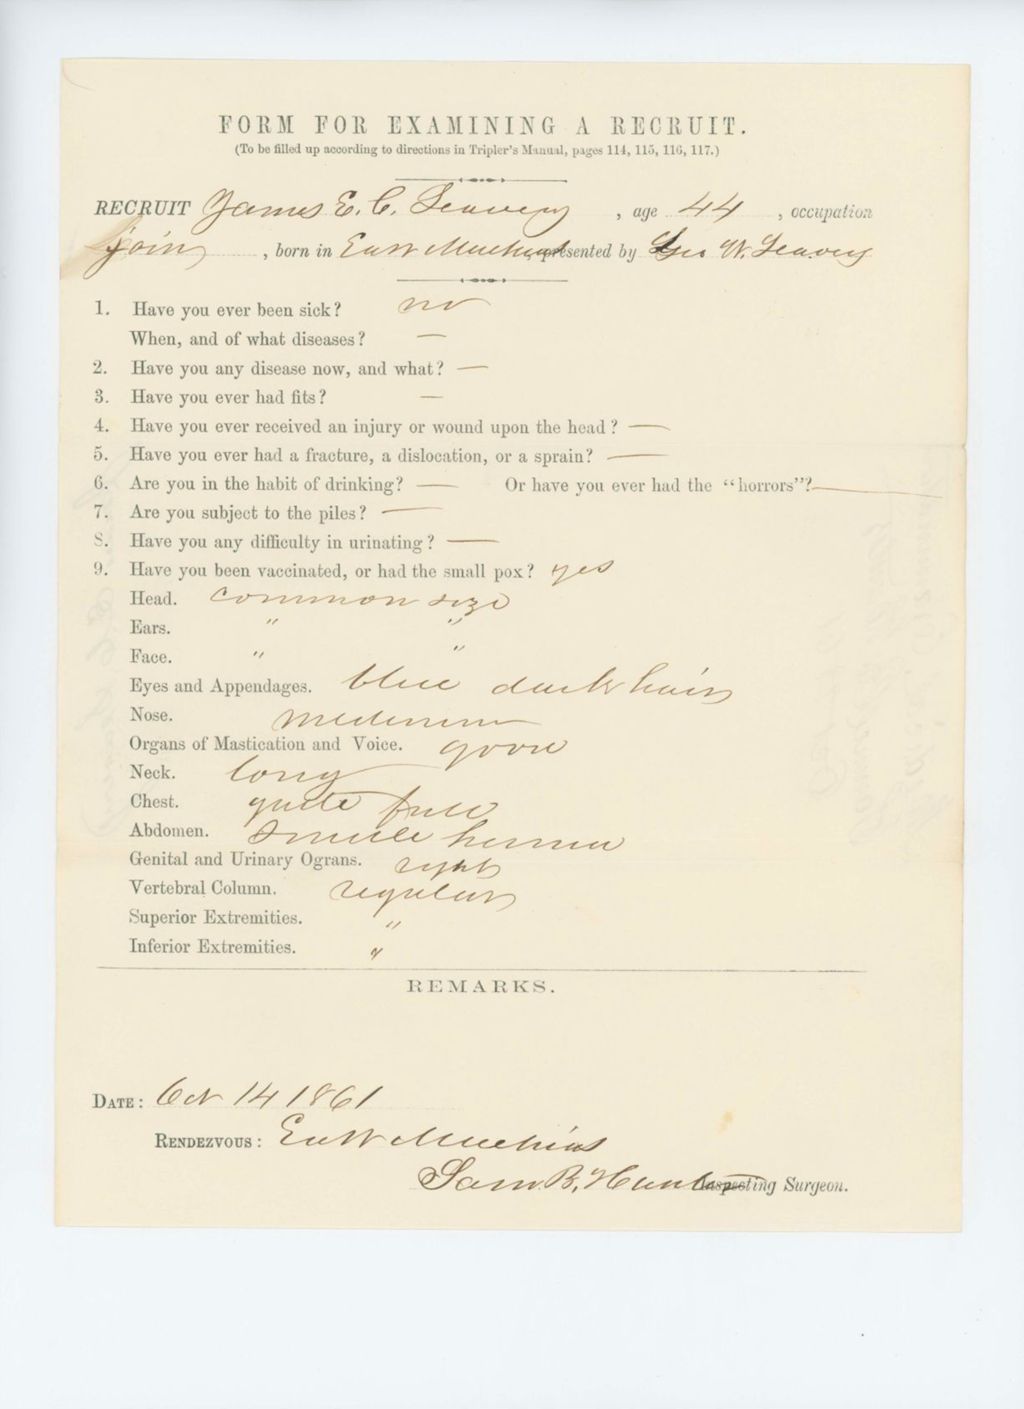 FORM FOR EXAMINING A RECRUIT.
(To be filled up according to directions in Tripler's Manual, pages 114, 115, 116, 117.)
RECRUIT James E. C. Seavey , age 44 , occupation
join , born in East Machias , presented by Geo W. Seavey
1. Have you ever been sick? no
When, and of what diseases? —
2. Have you any disease now, and what? —
3. Have you ever had fits? —
4. Have you ever received an injury or wound upon the head? —
5. Have you ever had a fracture, a dislocation, or a sprain? —
6. Are you in the habit of drinking? — Or have you ever had the "horrors"? —
7. Are you subject to the piles? —
8. Have you any difficulty in urinating? —
9. Have you been vaccinated, or had the small pox? yes
Head. common size
Ears. " "
Face. " "
Eyes and Appendages. blue dark hair
Nose. medium
Organs of Mastication and Voice. good
Neck. long
Chest. quite full
Abdomen.
Genital and Urinary Ograns. right
Vertebral Column. regular
Superior Extremities. "
Inferior Extremities. "
REMARKS.
DATE: Oct 14 1861
RENDEZVOUS: East Machias
Sam. B. Hunter Inspecting Surgeon.